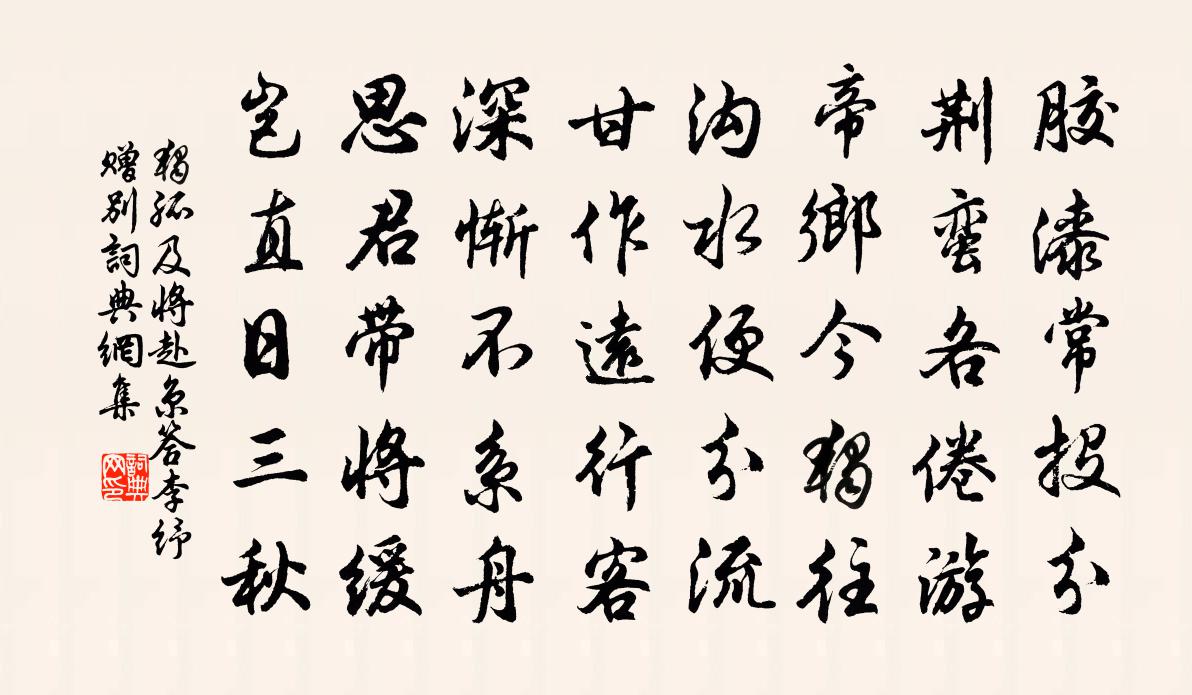 胶漆常投分
荆蛮各倦游
帝鄉今獨往
沟水便分流
甘作遠行客
深慚不系舟
思君带将缓
岂直日三秋
獨孤及将赴京答李纾
赠别詞典網集
詞典网印